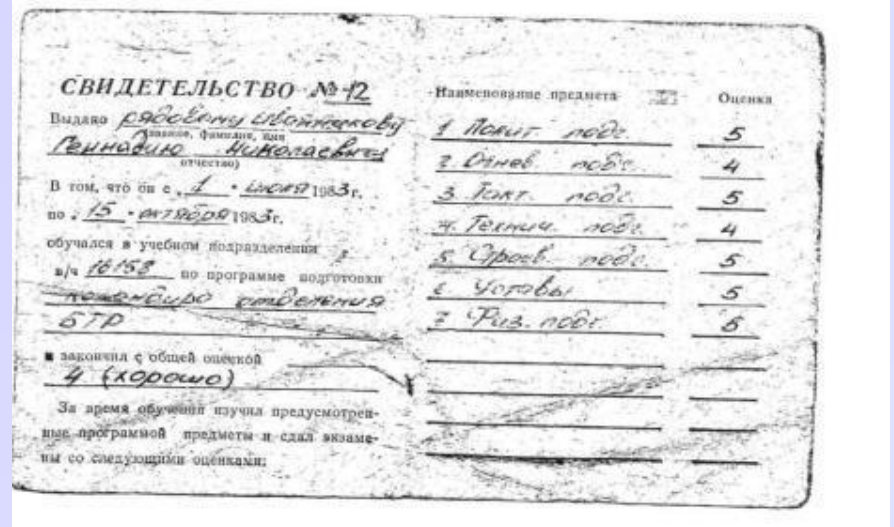 СВИДЕТЕЛЬСТВО № 12
Выдано рядовому
(звание, фамилия, имя
Геннадию Николаевичу
отчество)
В том, что он с „1 " июня 1983г.
по „15 " октября 1983г.
обучался в учебном подразделении
в/ч 16158 по программе подготовки
командира отделения
БТР
и закончил с общей оценкой
4 (хорошо)
За время обучения изучил предусмотрен-
ные программой предметы и сдал экзаме-
ны со следующими оценками:
Наименование предмета Оценка
1 Полит. подг. 5
2 Огнев. подг. 4
3. Такт. подг. 5
4. Технич. подг. 4
5. Строев. подг. 5
6 Уставы 5
7 Физ. подг. 5